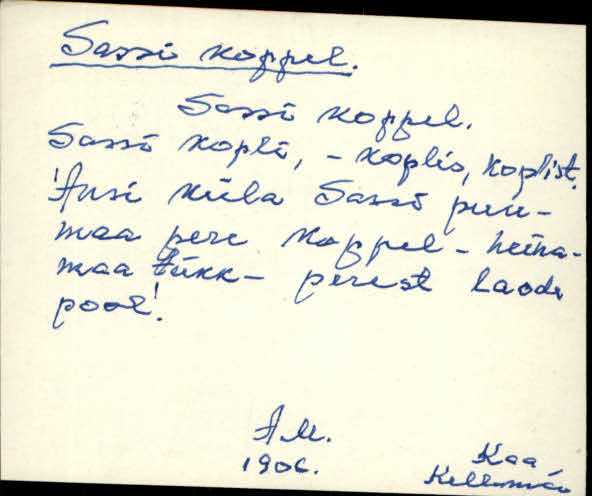 Sassi koppel.
Sassi koppel.
Sassi kopli, - koplis, koplist.
'Ansi küla Sassi puu-
maa pere koppel - heina-
maa tükk - perest laode
pool!
A.M.
1906.
Kaa